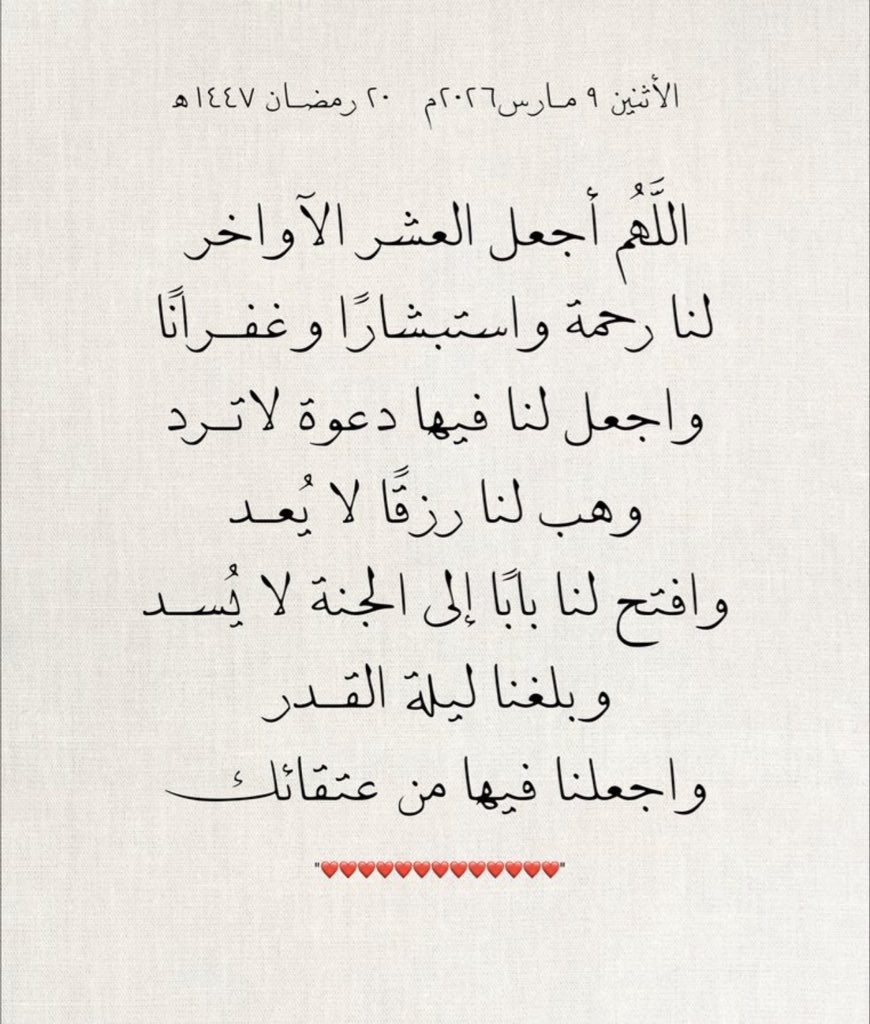 الأثنين ٩ مارس٢٠٢٦م ٢٠ رمضان ١٤٤٧ه
اللَّهُم أجعل العشر الآواخر
لنا رحمة واستبشارًا وغفرانًا
واجعل لنا فيها دعوة لاترد
وهب لنا رزقًا لا يُعد
وافتح لنا بابًا إلى الجنة لا يُسد
وبلغنا ليلة القدر
واجعلنا فيها من عتقائك
"❤️❤️❤️❤️❤️❤️❤️❤️❤️❤️❤️❤️❤️"